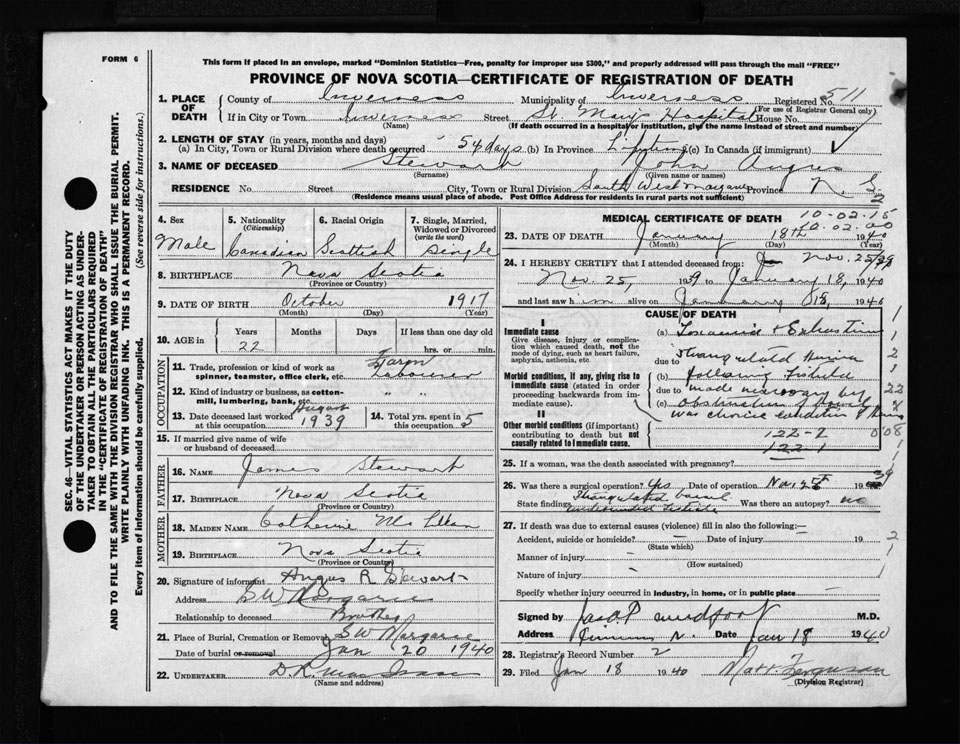 FORM 6
This form if placed in an envelope, marked "Dominion Statistics—Free, penalty for improper use $300," and properly addressed will pass through the mail "FREE"
PROVINCE OF NOVA SCOTIA—CERTIFICATE OF REGISTRATION OF DEATH
SEC. 46—VITAL STATISTICS ACT MAKES IT THE DUTY
OF THE UNDERTAKER OR PERSON ACTING AS UNDER-
TAKER TO OBTAIN ALL THE PARTICULARS REQUIRED
IN THE "CERTIFICATE OF REGISTRATION OF DEATH"
AND TO FILE THE SAME WITH THE DIVISION REGISTRAR WHO SHALL ISSUE THE BURIAL PERMIT.
WRITE PLAINLY WITH UNFADING INK. THIS IS A PERMANENT RECORD.
Every item of information should be carefully supplied. (See reverse side for instructions.)
1. PLACE OF DEATH
County of Inverness Municipality of Inverness Registered No. 511
(For use of Registrar General only)
If in City or Town Inverness Street St. Mary's Hospital House No.
(Name) (If death occurred in a hospital or institution, give the name instead of street and number)
2. LENGTH OF STAY (in years, months and days)
(a) In City, Town or Rural Division where death occurred 54 days (b) In Province Lifetime (c) In Canada (if immigrant)
3. NAME OF DECEASED Stewart John Angus
(Surname) (Given name or names)
RESIDENCE No. Street City, Town or Rural Division South West Margaree Province N. S.
(Residence means usual place of abode. Post Office Address for residents in rural parts not sufficient) 2
4. Sex Male
5. Nationality (Citizenship) Canadian
6. Racial Origin Scottish
7. Single, Married, Widowed or Divorced (write the word) Single
8. BIRTHPLACE Nova Scotia
(Province or Country)
9. DATE OF BIRTH October 1917
(Month) (Day) (Year)
10. AGE in Years Months Days If less than one day old
22 hrs. or min.
OCCUPATION
11. Trade, profession or kind of work as spinner, teamster, office clerk, etc. Farm Labourer
12. Kind of industry or business, as cotton-mill, lumbering, bank, etc. " "
13. Date deceased last worked at this occupation August 1939
14. Total yrs. spent in this occupation 5
15. If married give name of wife or husband of deceased
FATHER
16. NAME James Stewart
17. BIRTHPLACE Nova Scotia
(Province or Country)
MOTHER
18. MAIDEN NAME Catherine McLellan
19. BIRTHPLACE Nova Scotia
(Province or Country)
20. Signature of informant Angus R Stewart
Address S W Margaree
Relationship to deceased Brother
21. Place of Burial, Cremation or Removal S W Margaree
Date of burial or removal Jan 20 1940
22. UNDERTAKER D. R. MacIsaac
(Name and address)
MEDICAL CERTIFICATE OF DEATH 10-02-15
10-02-00
23. DATE OF DEATH January 18th 1940
(Month) (Day) (Year)
24. I HEREBY CERTIFY that I attended deceased from Nov. 25/39
Nov. 25, 1939 to January 18, 1940
and last saw him alive on January 18, 1940
CAUSE OF DEATH
I
Immediate cause
Give disease, injury or complication which caused death, not the mode of dying, such as heart failure, asphyxia, asthenia, etc.
(a) Toxaemia & Exhaustion
due to Strangulated Hernia
Morbid conditions, if any, giving rise to immediate cause (stated in order proceeding backwards from immediate cause).
(b) following fistula
due to made necessary by
(c) obstruction of bowel
II
Other morbid conditions (if important) contributing to death but not causally related to immediate cause.
122-2
122-1
1
1
2
1
22
4
008
1
25. If a woman, was the death associated with pregnancy?
26. Was there a surgical operation? Yes Date of operation Nov. 25 1939
State finding Strangulated bowel Was there an autopsy? no
27. If death was due to external causes (violence) fill in also the following:—
Accident, suicide or homicide? — Date of injury — 19
(State which)
Manner of injury —
(How sustained)
Nature of injury —
Specify whether injury occurred in industry, in home, or in public place —
2
1
Signed by M.D.
Address Date Jan 18 1940
28. Registrar's Record Number 2
29. Filed Jan 18 1940 Matt Ferguson
(Division Registrar)